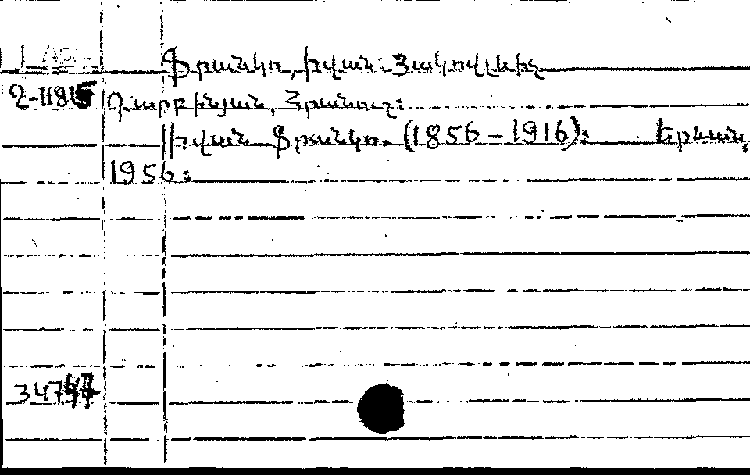 Ֆրանկո, Իվան Յակովլևիչ
Զ-1181 Զարբինյան, Հրանուշ։
Իվան Ֆրանկո. (1856 – 1916)։ Երևան,
1956։